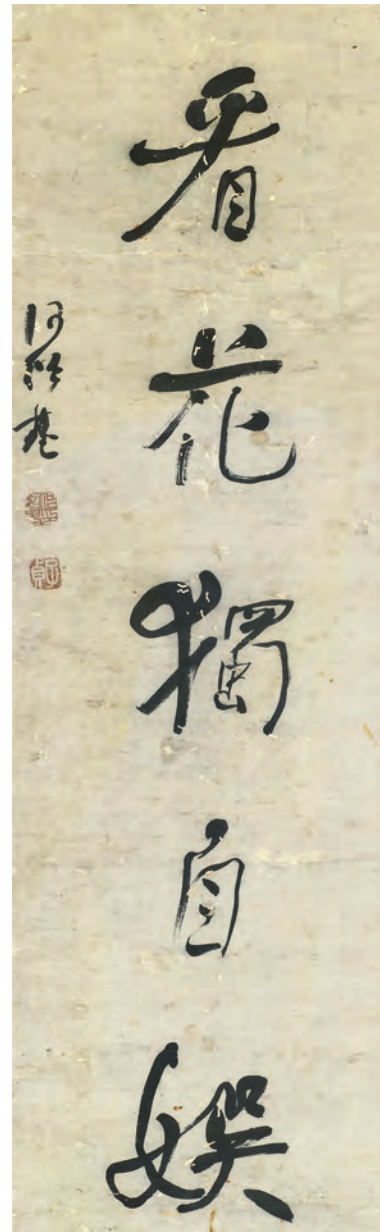 看花獨自娛
何紹基